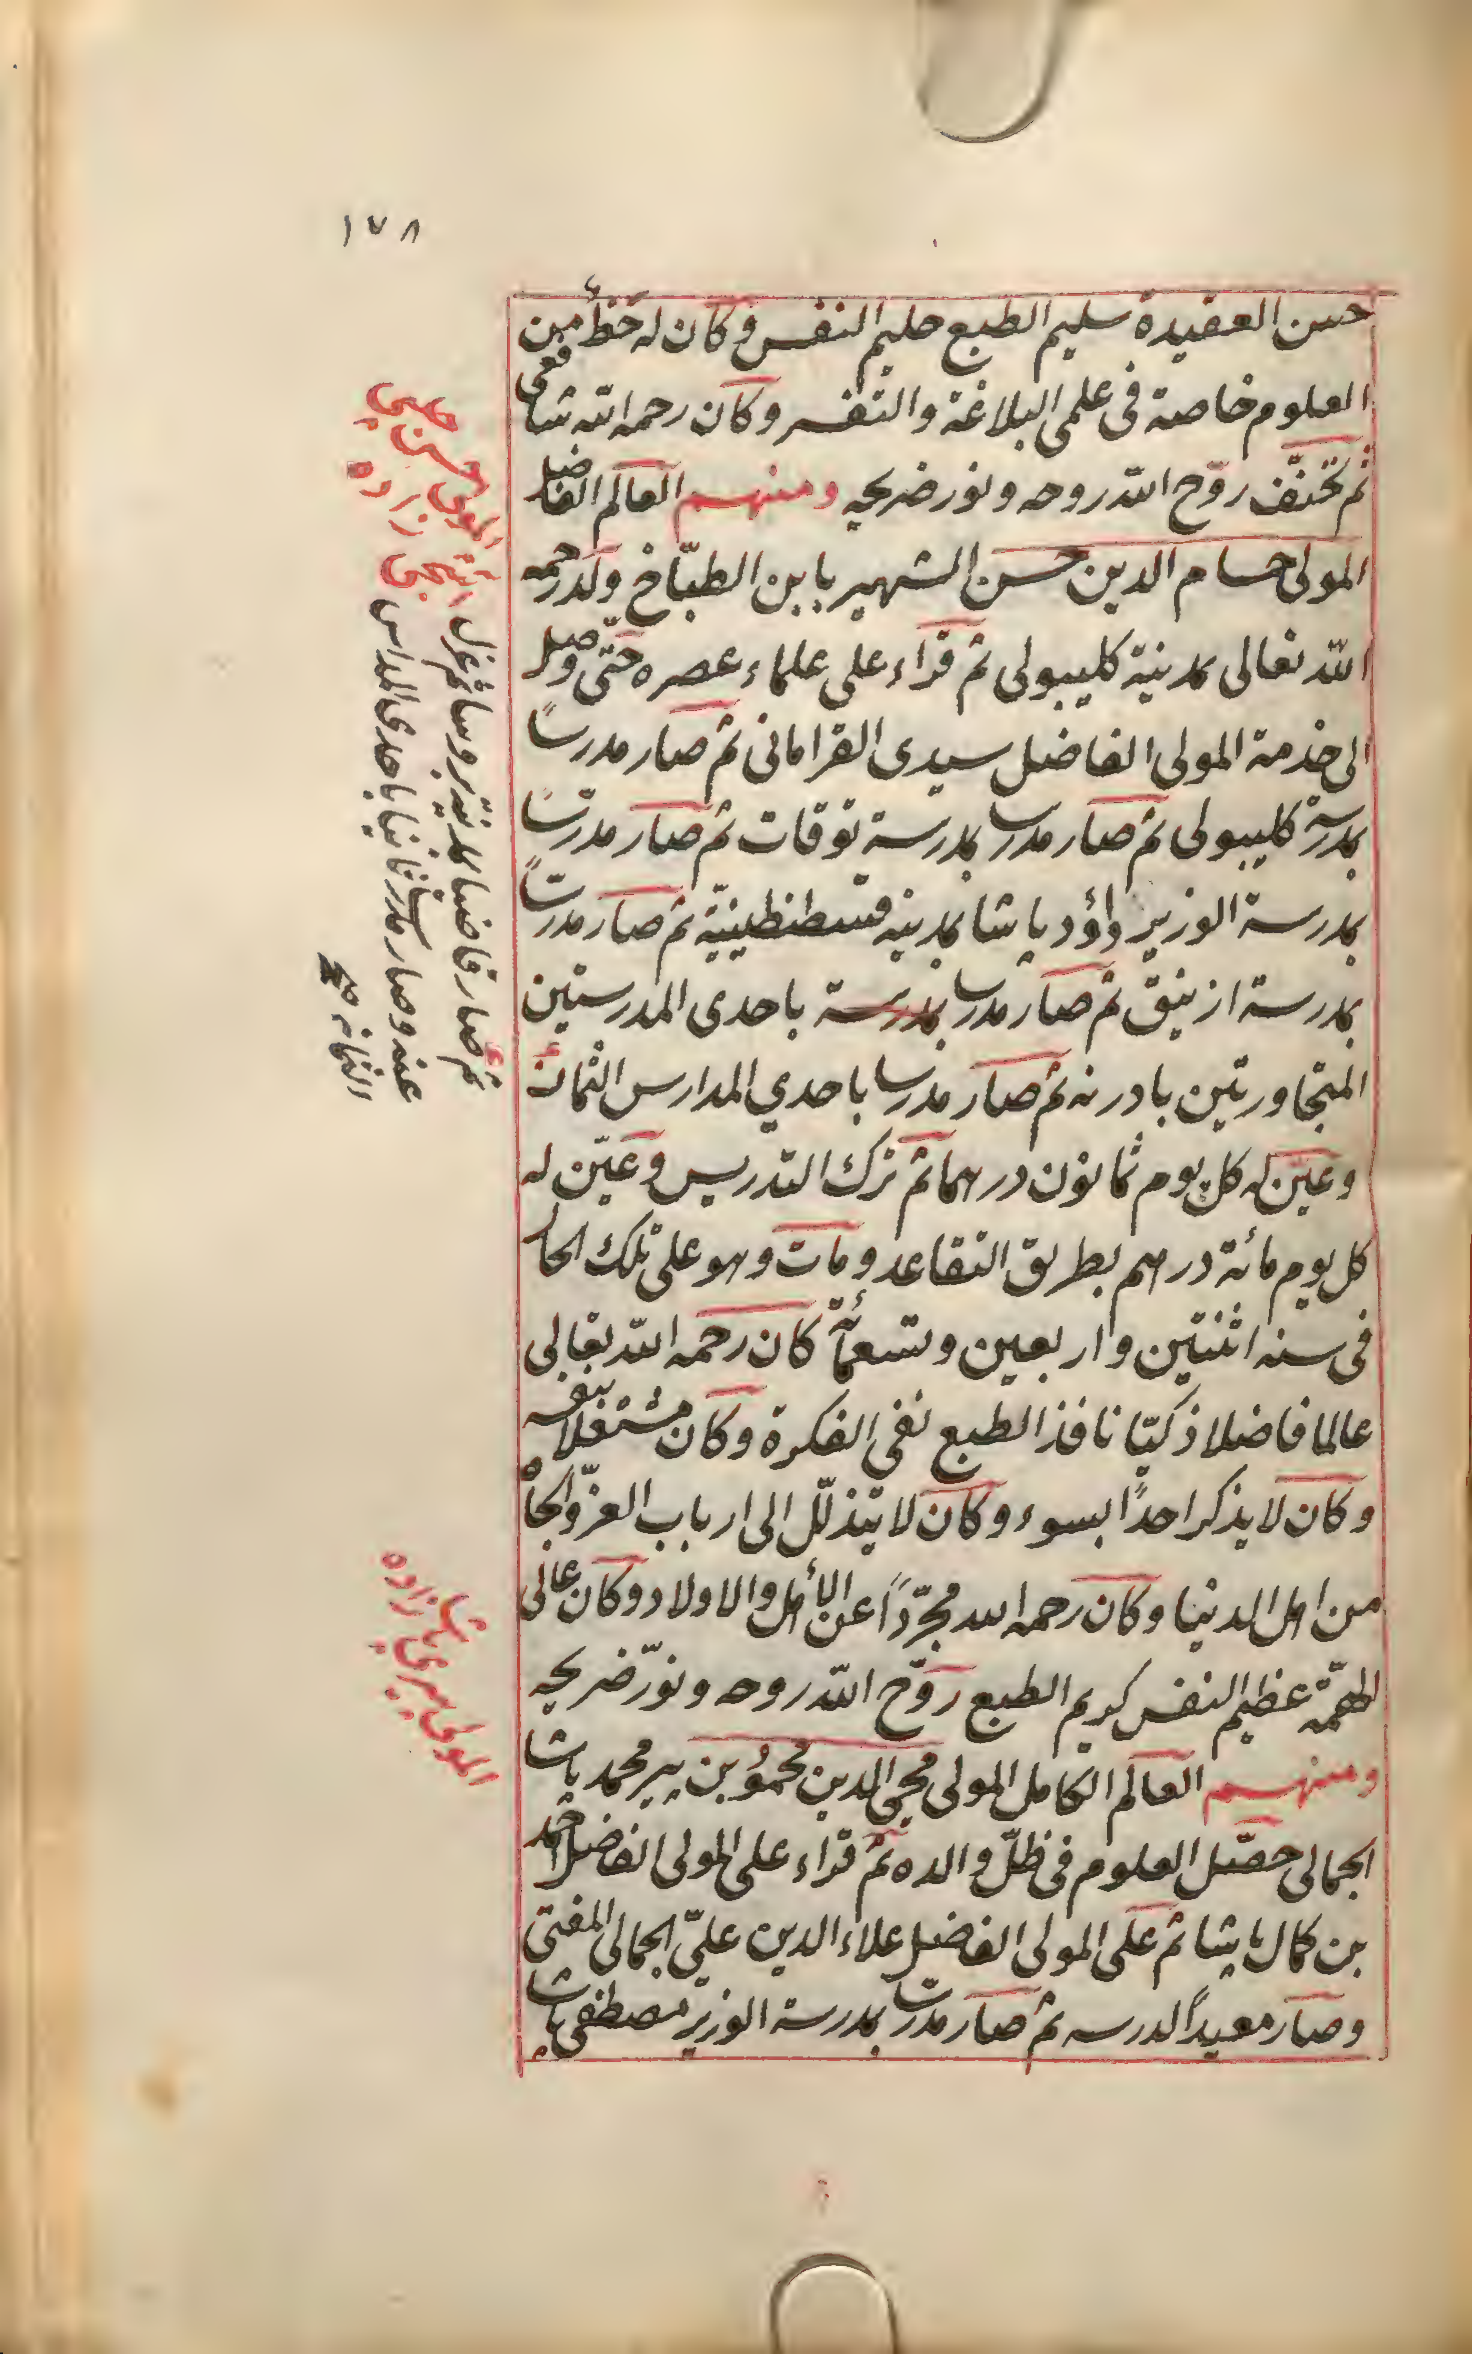 ١٧٨
حسن العقيدة سليم الطبع حليم النفس وكان له حظ من
العلوم خاصة فى علمى البلاغة والتفسر وكان رحمه الله شافعى
ثم تحنّف روّح الله روحه ونور ضريحه ومنهم العالم الفاضل
المولى حسام الدين حسن الشهير بابن الطبّاخ ولد رحمه
الله تعالى بمدينة كليبولى ثم قراء على علماء عصره حتى وصل
الى خدمة المولى الفاضل سيدى القرامانى ثم صار مدرسًا
بمدرسة كليبولى ثم صار مدرسا بمدرسة توقات ثم صار مدرسًا
بمدرسة الوزير داؤد پاشا بمدينه قسطنطينيّة ثم صار مدرسًا
بمدرسة ازنيق ثم صار مدرسا بمدرسة باحدى المدرستين
المتجاورتين بادرنه ثم صار مدرسا باحدي المدارس الثمان
وعيّن له كل يوم ثمانون درهما ثم ترك التدريس وعيّن له
كل يوم مائة درهم بطريق التقاعد ومات وهو على تلك الحال
فى سنه اثنتين واربعين وتسعمائة كان رحمه الله تعالى
عالما فاضلا ذكيّا نافذ الطبع نقى الفكرة وكان مشتغلا بنفسه
وكان لا يذكر احدًا بسوء وكان لا يتذلّل الى ارباب العزّ والجاه
من اهل الدنيا وكان رحمه الله مجرّدًا عن الأهل والاولاد وكان عالى
الهمّة عظيم النفس كريم الطبع روّح الله روحه ونوّر ضريحه
ومنهم العالم الكامل المولى محيى الدين محمود بن پير محمد پاشا
الجمالى حصّل العلوم فى ظلّ والده ثم قراء على المولى الفاضل احمد
بن كمال پاشا ثم على المولى الفاضل علاء الدين علىّ الجمالى المفتى
وصار معيدًا لدرسه ثم صار مدرسًا بمدرسة الوزير مصطفى پاشا
المولى حسن چلبى
زاده
ثم صار قاضيا بمدينة بروسا ثم عزل
عنه وصار مدرسا ثانيا باحدى المدارس
الثمانه صح
المولى پيرى پاشا زاده